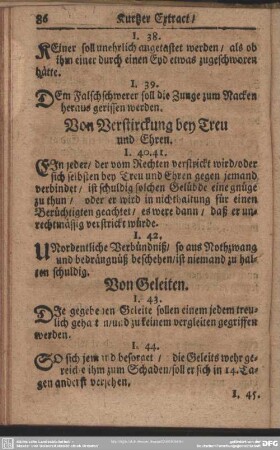 86 Kurtzer Extract/
I. 38.
KEiner soll unehrlich angetastet werden/ als ob
ihm einer durch einen Eyd etwas zugeschworen
hätte.
I. 39.
DEm Falschschwerer soll die Zunge zum Nacken
heraus gerissen werden.
Von Verstirckung bey Treu
und Ehren.
I. 40. 41.
EIn jeder/ der vom Rechten verstrickt wird/ oder
sich selbsten bey Treu und Ehren gegen jemand
verbindet/ ist schuldig solchen Gelübde eine gnüge
zu thun/ oder er wird in nichthaltung für einen
Berüchtigten geachtet/ es were dann/ daß er un-
rechtmässig verstrickt würde.
I. 42.
UNordentliche Verbündniß/ so aus Nothzwang
und bedrängnüß beschehen/ ist niemand zu hal-
ten schuldig.
Von Geleiten.
I. 43.
DIe gegebenen Geleite sollen einem jedem treu-
lich und zu keinem vergleiten gegriffen
werden.
I. 44.
SO sich besorget/ die Geleits mehr ge-
reiche ihm zum Schaden/ soll er sich in 14. Ta-
gen anderst versehen.
I. 45.